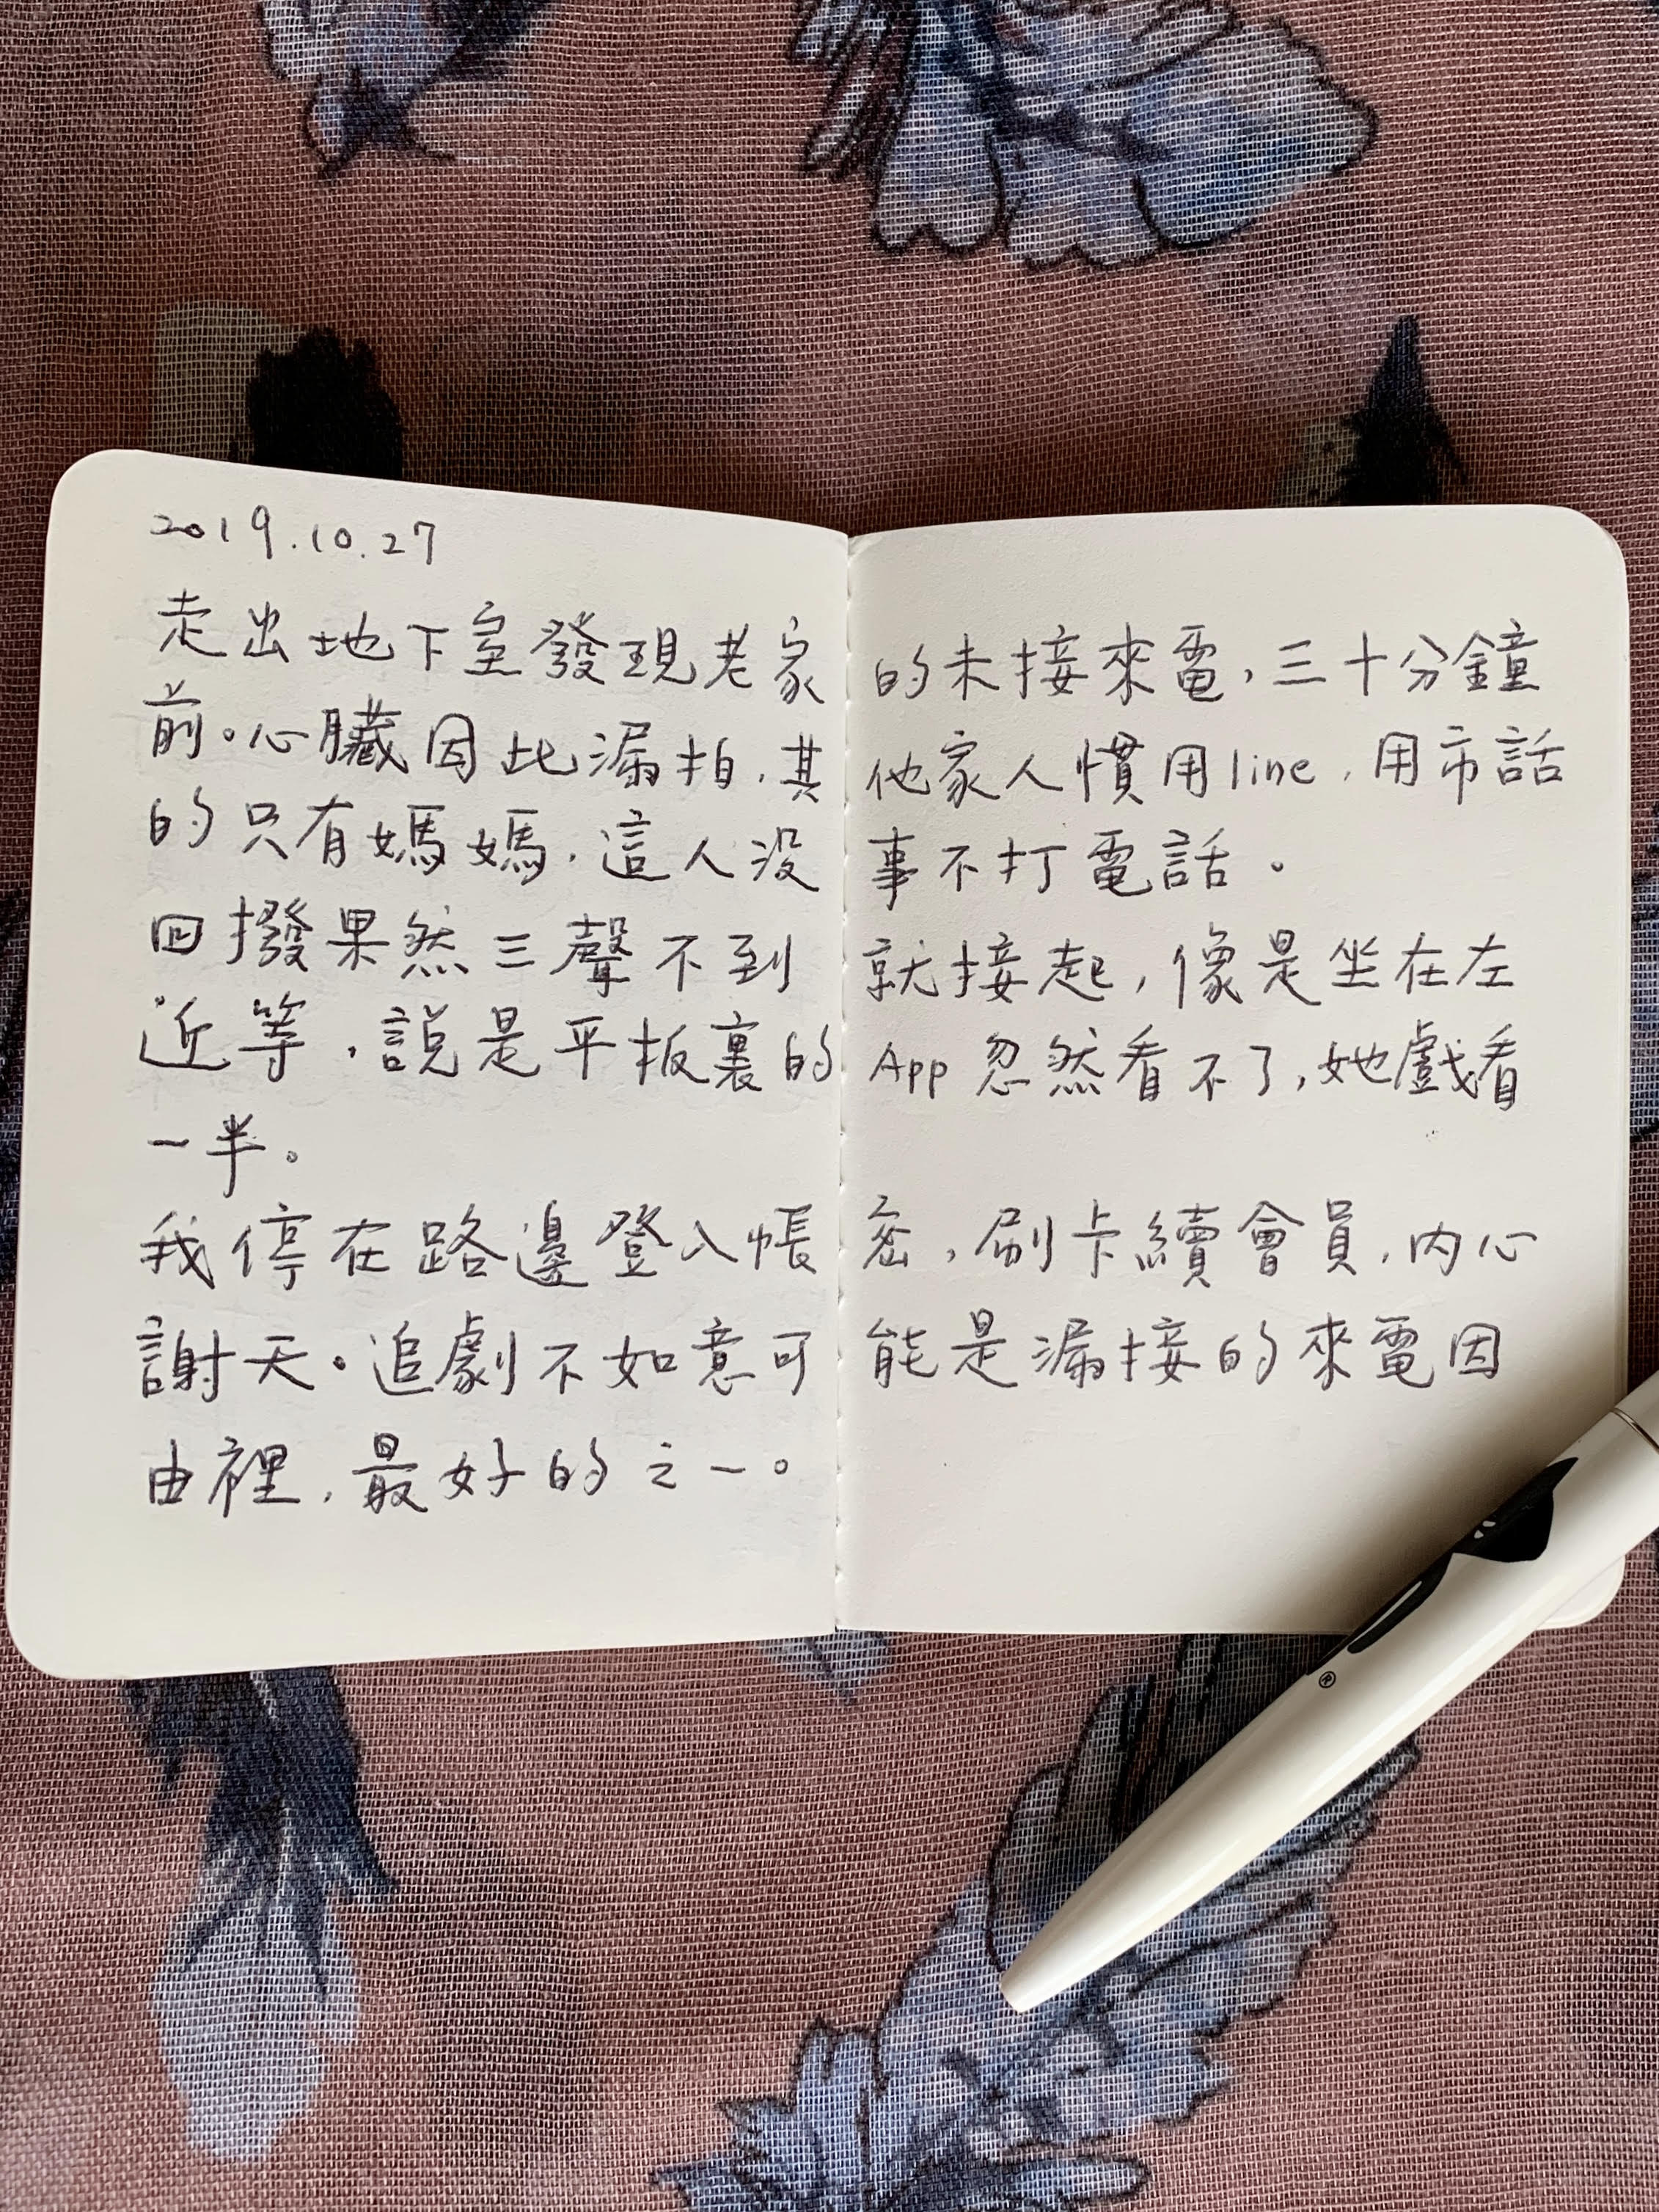 2019.10.27
走出地下室發現老家的未接來電,三十分鐘
前。心臟因此漏拍,其他家人慣用line,用市話
的只有媽媽,這人沒事不打電話。
回撥果然三聲不到就接起,像是坐在左
近等,說是平板裏的App忽然看不了,她戲看
一半。
我停在路邊登入帳密,刷卡續會員,內心
謝天。追劇不如意可能是漏接的來電因
由裡,最好的之一。
®